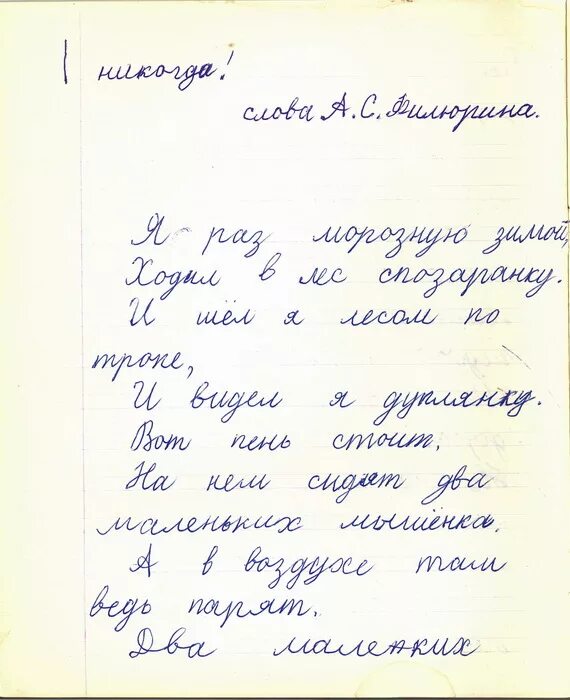 никогда!
слова А. С. Филюрина.
Я раз морозную зимой,
Ходил в лес спозаранку.
И шёл я лесом по
тропе,
И видел я дуплянку.
Вот пень стоит.
На нем сидят два
маленьких мышёнка.
А в воздухе там
ведь парят.
Два маленких